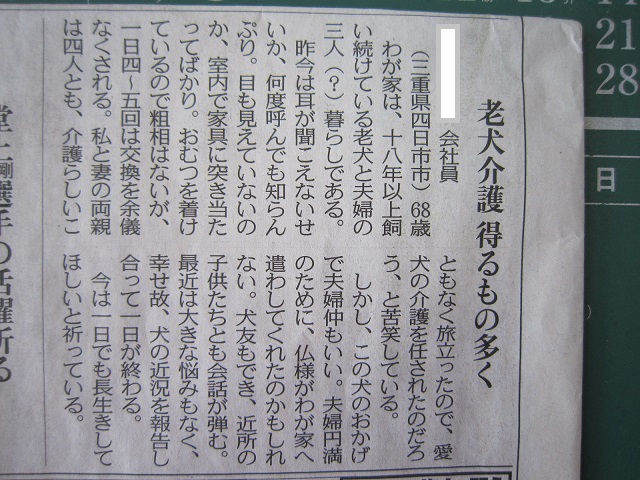 老犬介護 得るもの多く
会社員
（三重県四日市市）68歳
わが家は、十八年以上飼
い続けている老犬と夫婦の
三人（？）暮らしである。
昨今は耳が聞こえないせ
いか、何度呼んでも知らん
ぷり。目も見えていないの
か、室内で家具に突き当た
ってばかり。おむつを着け
ているので粗相はないが、
一日四〜五回は交換を余儀
なくされる。私と妻の両親
は四人とも、介護らしいこ
ともなく旅立ったので、愛
犬の介護を任されたのだろ
う、と苦笑している。
しかし、この犬のおかげ
で夫婦仲もいい。夫婦円満
のために、仏様がわが家へ
遣わしてくれたのかもしれ
ない。犬友もでき、近所の
子供たちとも会話が弾む。
最近は大きな悩みもなく、
幸せ故、犬の近況を報告し
合って一日が終わる。
今は一日でも長生きして
ほしいと祈っている。
堂上剛選手の活躍祈る
21
28
日